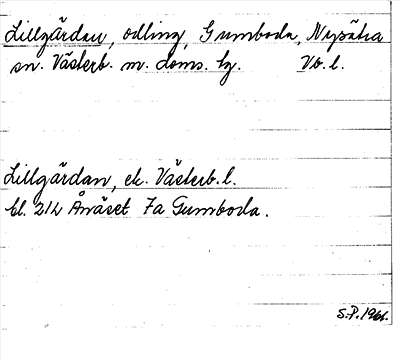 Lillgärdan, odling, Gumboda, Nysätra
sn. Västerb. m. doms. hg. Vb. l.
Lillgärdan, ek. Västerb. l.
bl. 21L Ånäset 7a Gumboda.
S.P. 1961.